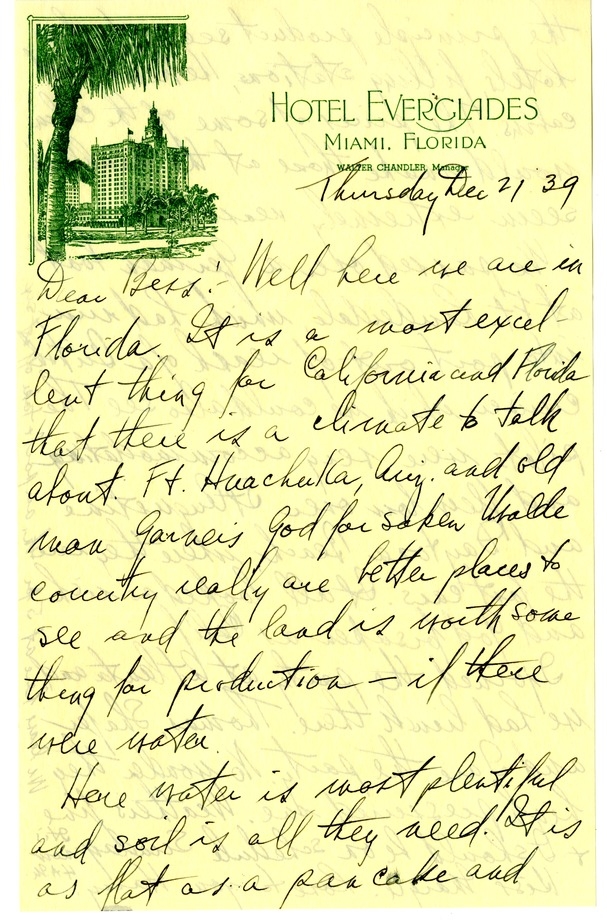 HOTEL EVERGLADES
MIAMI, FLORIDA
WALTER CHANDLER, Manager
Thursday Dec 21 39
Dear Bess:- Well here we are in
Florida. It is a most excel-
lent thing for California and Florida
that there is a climate to talk
about. Ft. Huachuka, Ariz. and old
man Garners God for saken Uvalde
country really are better places to
see and the land is worth some
thing for production - if there
were water.
Here water is most plentiful
and soil is all they need. It is
as flat as a pancake and